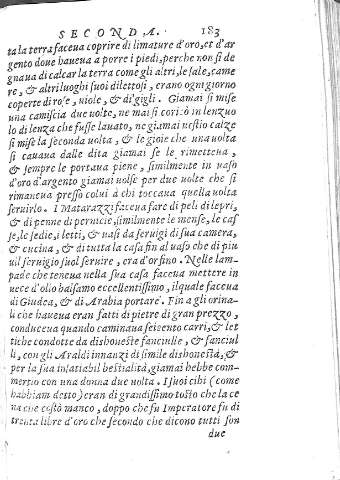 SECONDA. 183
ta la terra faceua coprire di limature d'oro, et d'ar
gento doue haueua a porre i piedi, perche non si de
gnaua di calcar la terra come gli altri, le sale, came
re, & altri luoghi suoi dilettosi, erano ogni giorno
coperte di rose, uiole, & di gigli. Giamai si mise
una camiscia due uolte, ne mai si coricò in lenzuo
lo di lenza che fusse lauato, ne giamai calze
si mise la seconda uolta, & le gioie che una uolta
si cauaua dalle dita giamai se le rimetteua,
& sempre le portaua piene, similmente in uaso
d'oro d'argento giamai uolse per due uolte che si
rimaneua presso colui à chi toccaua quella uolta
seruirlo. I Matarazzi faceua fare di peli di lepri,
& di penne di pernicie, similmente le mense, le cas
se, le sedie, i letti, & uasi da seruigi di sua camera,
& cucina, & di tutta la casa fin al uaso che di piu
uil seruigio suol seruire, era d'or fino. Nelle lam-
pade che teneua nella sua casa faceua mettere in
uece d'olio balsamo eccellentissimo, ilquale faceua
di Giudea, & di Arabia portare. Fin a gli orina-
li che haueua eran fatti di pietre di gran prezzo,
conduceua quando caminaua seicento carri, & let
tiche condotte da dishoneste fanciulle, & fanciul
li, con gli Araldi innanzi di simile dishonestà, &
per la sua insatiabil bestialità, giamai hebbe com-
mertio con una donna due uolta. I suoi cibi (come
habbiam detto) eran di grandissimo costo che la ce
na che costò manco, doppo che fu Imperatore fu di
trenta libre d'oro che secondo che dicono tutti son
due